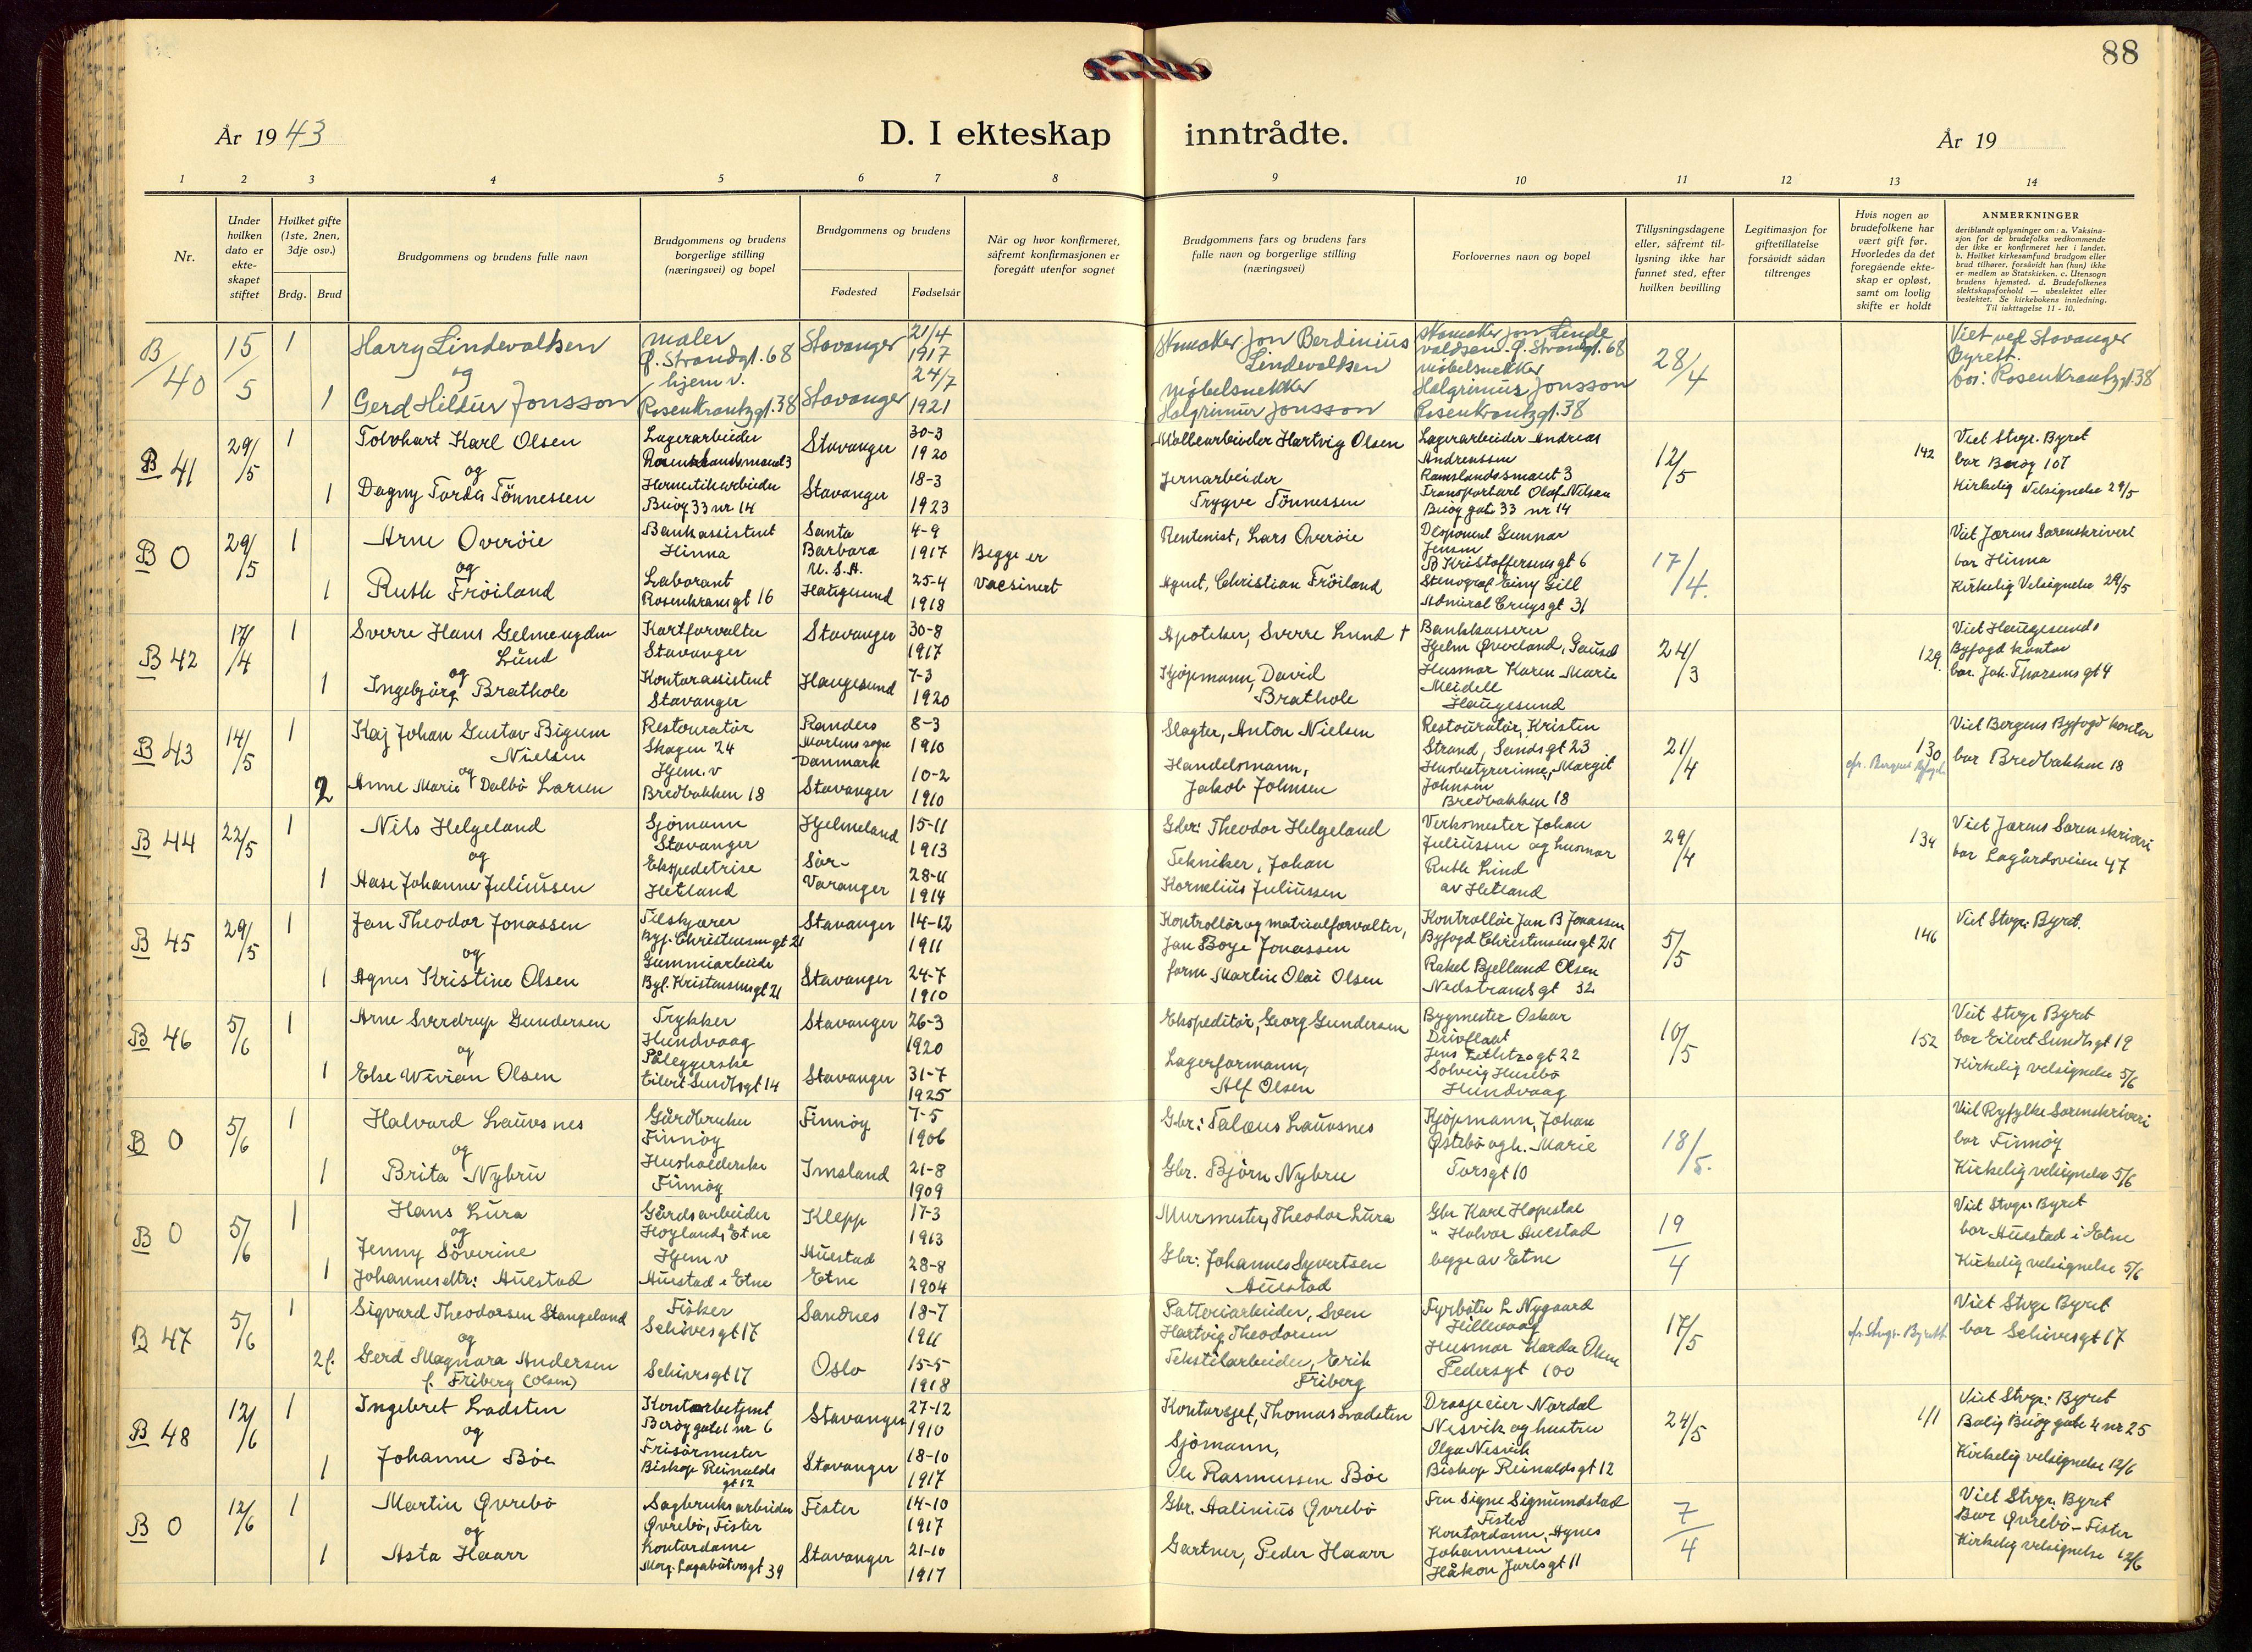 88
År 19 43
D. I ekteskap inntrådte.
År 19
1 2 3 4 5 6 7 8 9 10 11 12 13 14
Nr.
Under
hvilken
dato er
ekte-
skapet
stiftet
Hvilket gifte
(1ste, 2nen,
3dje osv.)
Brdg. Brud
Brudgommens og brudens fulle navn
Brudgommens og brudens
borgerlige stilling
(næringsvei) og bopel
Brudgommens og brudens
Fødested
Fødselsår
Når og hvor konfirmeret,
såfremt konfirmasjonen er
foregått utenfor sognet
Brudgommens fars og brudens fars
fulle navn og borgerlige stilling
(næringsvei)
Forlovernes navn og bopel
Tillysningsdagene
eller, såfremt til-
lysning ikke har
funnet sted, efter
hvilken bevilling
Legitimasjon for
giftetillatelse
forsåvidt sådan
tiltrenges
Hvis nogen av
brudefolkene har
vært gift før.
Hvorledes da det
foregående ekte-
skap er opløst,
samt om lovlig
skifte er holdt
ANMERKNINGER
deriblandt oplysninger om: a. Vaksina-
sjon for de brudefolks vedkommende
der ikke er konfirmeret her i landet.
b. Hvilket kirkesamfund brudgom eller
brud tilhører, forsåvidt han (hun) ikke
er medlem av Statskirken. c. Utensogn
brudens hjemsted. d. Brudefolkenes
slektskapsforhold — ubeslektet eller
beslektet. Se kirkebokens innledning.
Til iakttagelse 11 - 10.
B/40
15/5
1
Harry Lindevaldsen
og
1
Gerd Hildur Jonsson
maler
Ø. Strandgt. 68
hjem v.
Rosenkrantzgt. 38
Stavanger
Stavanger
21/4
1917
24/7
1921
Skomaker Jon Berdinius
Lindevaldsen
møbelsnekker
Halgrimur Jonsson
Skomaker Jon Linde
valdsen. Ø. Strandgt. 68
møbelsnekker
Halgrimur Jonsson
Rosenkrantzgt. 38
28/4
Viet ved Stavanger
Byrett.
bor: Rosenkrantzgt. 38
B 41
29/5
1
Tolvhart Karl Olsen
og
1
Dagny Torda Tönnessen
Lagerarbeider
Hermetikarbeider
Buøy 33 nr 14
Stavanger
Stavanger
30-3
1920
18-3
1923
Hartvig Olsen
Jernarbeider
Trygve Tönnessen
Lagerarbeider Andreas
Andreassen
Ramslandsmauet 3
Transportarb Olaf Nilsen
Buøy gate 33 nr 14
12/5
142
Viet Stvgr. Byret
bor Buøy 107
Kirkelig Velsignelse 29/5
B 0
29/5
1
Arne Overöie
og
1
Ruth Fröiland
Bankassistent
Hinna
Laborant
Rosenkransgt 16
Santa
Barbara
U. S. A.
Haugesund
4-9
1917
25-4
1918
Begge er
vacsinert
Rentenist, Lars Overöie
Agent, Christian Fröiland
Disponent Gunnar
Jensen
B Kristoffersensgt 6
Stenograf Einy Gill
Admiral Cruysgt 31
17/4.
Viet Jærens Sorenskriveri
bor Hinna
Kirkelig Velsignelse 29/5
B 42
17/4
1
Sverre Hans
Lund
og
1
Ingebjörg Brathole
Kartforvalter
Stavanger
Kontorassistent
Stavanger
Stavanger
Haugesund
30-8
1917
7-3
1920
Apoteker, Sverre Lund †
Kjöpmann, David
Brathole
Bankkasserer
Hjelm Øverland, Gausel
Husmor Karen Marie
Meidell
Haugesund
24/3
129.
Viet Haugesunds
Byfogd kontor
bor. Joh. Thorsens gt 4
B 43
14/5
1
Kaj Johan Gustav Bigum
Nielsen
og
2
Anne Marie Dalbö Larsen
Restauratör
Skagen 24
Hjem. v
Bredbakken 18
Randers
Mortens sogn
Danmark
Stavanger
8-3
1910
10-2
1910
Slagter, Anton Nielsen
Handelsmann,
Jakob Johnsen
Restauratør, Kristen
Strand, Sandsgt 23
Husbestyrerinne, Margit
Johnsen
Bredbakken 18
21/4
130
Viet Bergens Byfogd kontor
bor Bredbakken 18
B 44
22/5
1
Nils Helgeland
og
1
Aase Johanne Juliussen
Sjömann
Stavanger
Ekspedetrise
Hetland
Hjelmeland
Sör-
Varanger
15-11
1913
28-11
1914
Gbr: Theodor Helgeland
Tekniker, Johan
Kornelius Juliussen
Verksmester Johan
Juliussen og husmor
Ruth Lind
av Hetland
29/4
134
Viet Jærens Sorenskriveri
bor Lagårdsveien 47
B 45
29/5
1
Jan Theodor Jonassen
og
1
Agnes Kristine Olsen
Tilskjærer
Byf. Christensensgt 21
Gummiarbeider
Byf. Kristensensgt 21
Stavanger
Stavanger
14-12
1911
24-7
1910
Kontrollör og matrialforvalter,
Jan Boye Jonassen
form Martin Olai Olsen
Kontrollör Jan B Jonassen
Byfogd Christensensgt 21
Rakel Bjelland Olsen
Nedstrandsgt 32
5/5
146
Viet Stvgr. Byret.
B 46
5/6
1
Arne Sverdrup Gundersen
og
1
Else Wivian Olsen
Trykker
Hundvaag
Påleggerske
Eilert Sundtsgt 14
Stavanger
Stavanger
26-3
1920
31-7
1925
Ekspeditör, Georg Gundersen
Lagerformann,
Alf Olsen
Bygmester Oskar
Drivflaat
Jens Zetlitzsgt 22
Solveig Husebö
Hundvaag
10/5
152
Viet Stvgr Byret
bor Eilert Sundtsgt 19
Kirkelig velsignelse 5/6
B 0
5/6
1
Halvard Lauvsnes
og
1
Brita Nybru
Gårdbruker
Finnöy
Husholderske
Finnöy
Finnöy
Imsland
7-5
1906
21-8
1909
Gbr: Lauvsnes
Gbr. Björn Nybru
Kjöpmann, Johan
Östebö og h. Marie
Torsgt 10
18/5.
Viet Ryfylke Sorenskriveri
bor Finnöy
Kirkelig velsignelse 5/6
B 0
5/6
1
Hans Lura
og
Jenny Söverine
1
Johannesdtr: Auestad
Gårdsarbeider
Høyland, Etne
Hjem v
Auestad i Etne
Klepp
Auestad
Etne
17-3
1913
28-8
1904
Murmester, Theodor Lura
Gbr: Johannes Syvertsen
Auestad
Gbr Karl Hopestad
" Halvor Auestad
begge av Etne
19/4
Viet Stvgr: Byret
bor Auestad i Etne
Kirkelig velsignelse 5/6
B 47
5/6
1
Sigvard Theodorsen Stangeland
og
2 f.
Gerd Magnora Andersen
f. Friberg (Olsen)
Fisker
Schivesgt 17
Schivesgt 17
Sandnes
Oslo
18-7
1911
15-5
1918
Sven
Hartvig Theodorsen
Tekstilarbeider, Erik
Friberg
Fyrböter L Nygaard
Hillevaag
Husmor Karda Olsen
Pedersgt 100
17/5
Viet Stvgr Byret
bor Schivesgt 17
B 48
12/6
1
Ingebret Ladsten
og
1
Johanne Böe
Kontorbetjent
nr 6
Frisörmester
Biskop Reinalds
gt 12
Stavanger
Stavanger
27-12
1910
18-10
1917
Kontorsjef, Thomas Ladsten
Sjömann,
Ole Rasmussen Böe
Drosjeeier Nordal
Nesvik og hustru
Olga Nesvik
Biskop Reinaldsgt 12
24/5
Viet Stvgr: Byret
Bolig Buöy gate 4 nr 25
Kirkelig velsignelse 12/6
B 0
12/6
1
Martin Øvrebö
og
1
Asta Haarr
Sagbruksarbeider
Øvrebö, Fister
Kontordame
Mag. Lagabötersgt 39
Fister
Stavanger
14-10
1917
21-10
1917
Gbr. Halinius Øvrebö
Gartner, Peder Haarr
Fru Signe Sigmundstad
Fister
Kontordame, Agnes
Johannesen
Håkon Jarlsgt 11
7/4
Viet Stvgr. Byret
Bor Øvrebö - Fister
Kirkelig velsignelse 12/6